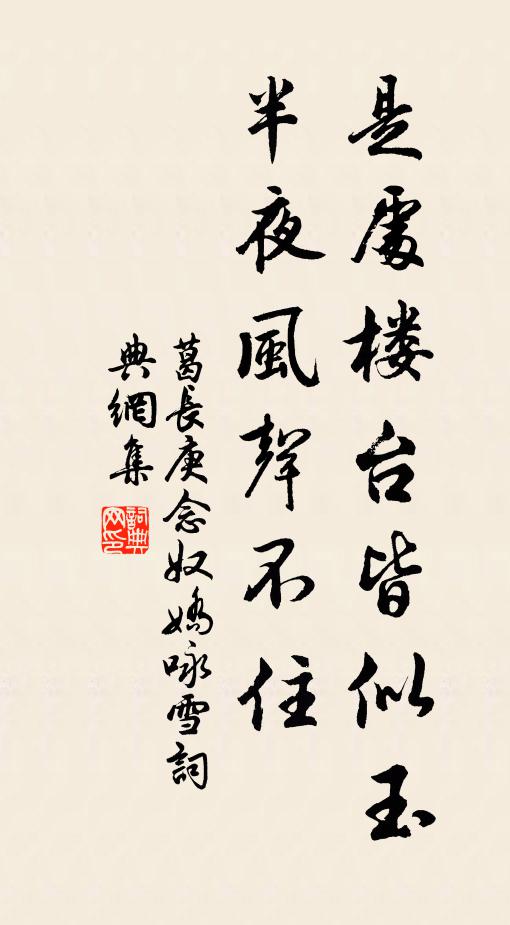 是處楼台皆似玉
半夜風聲不住
葛長庚念奴嬌咏雪詞
典網集
詞典网印